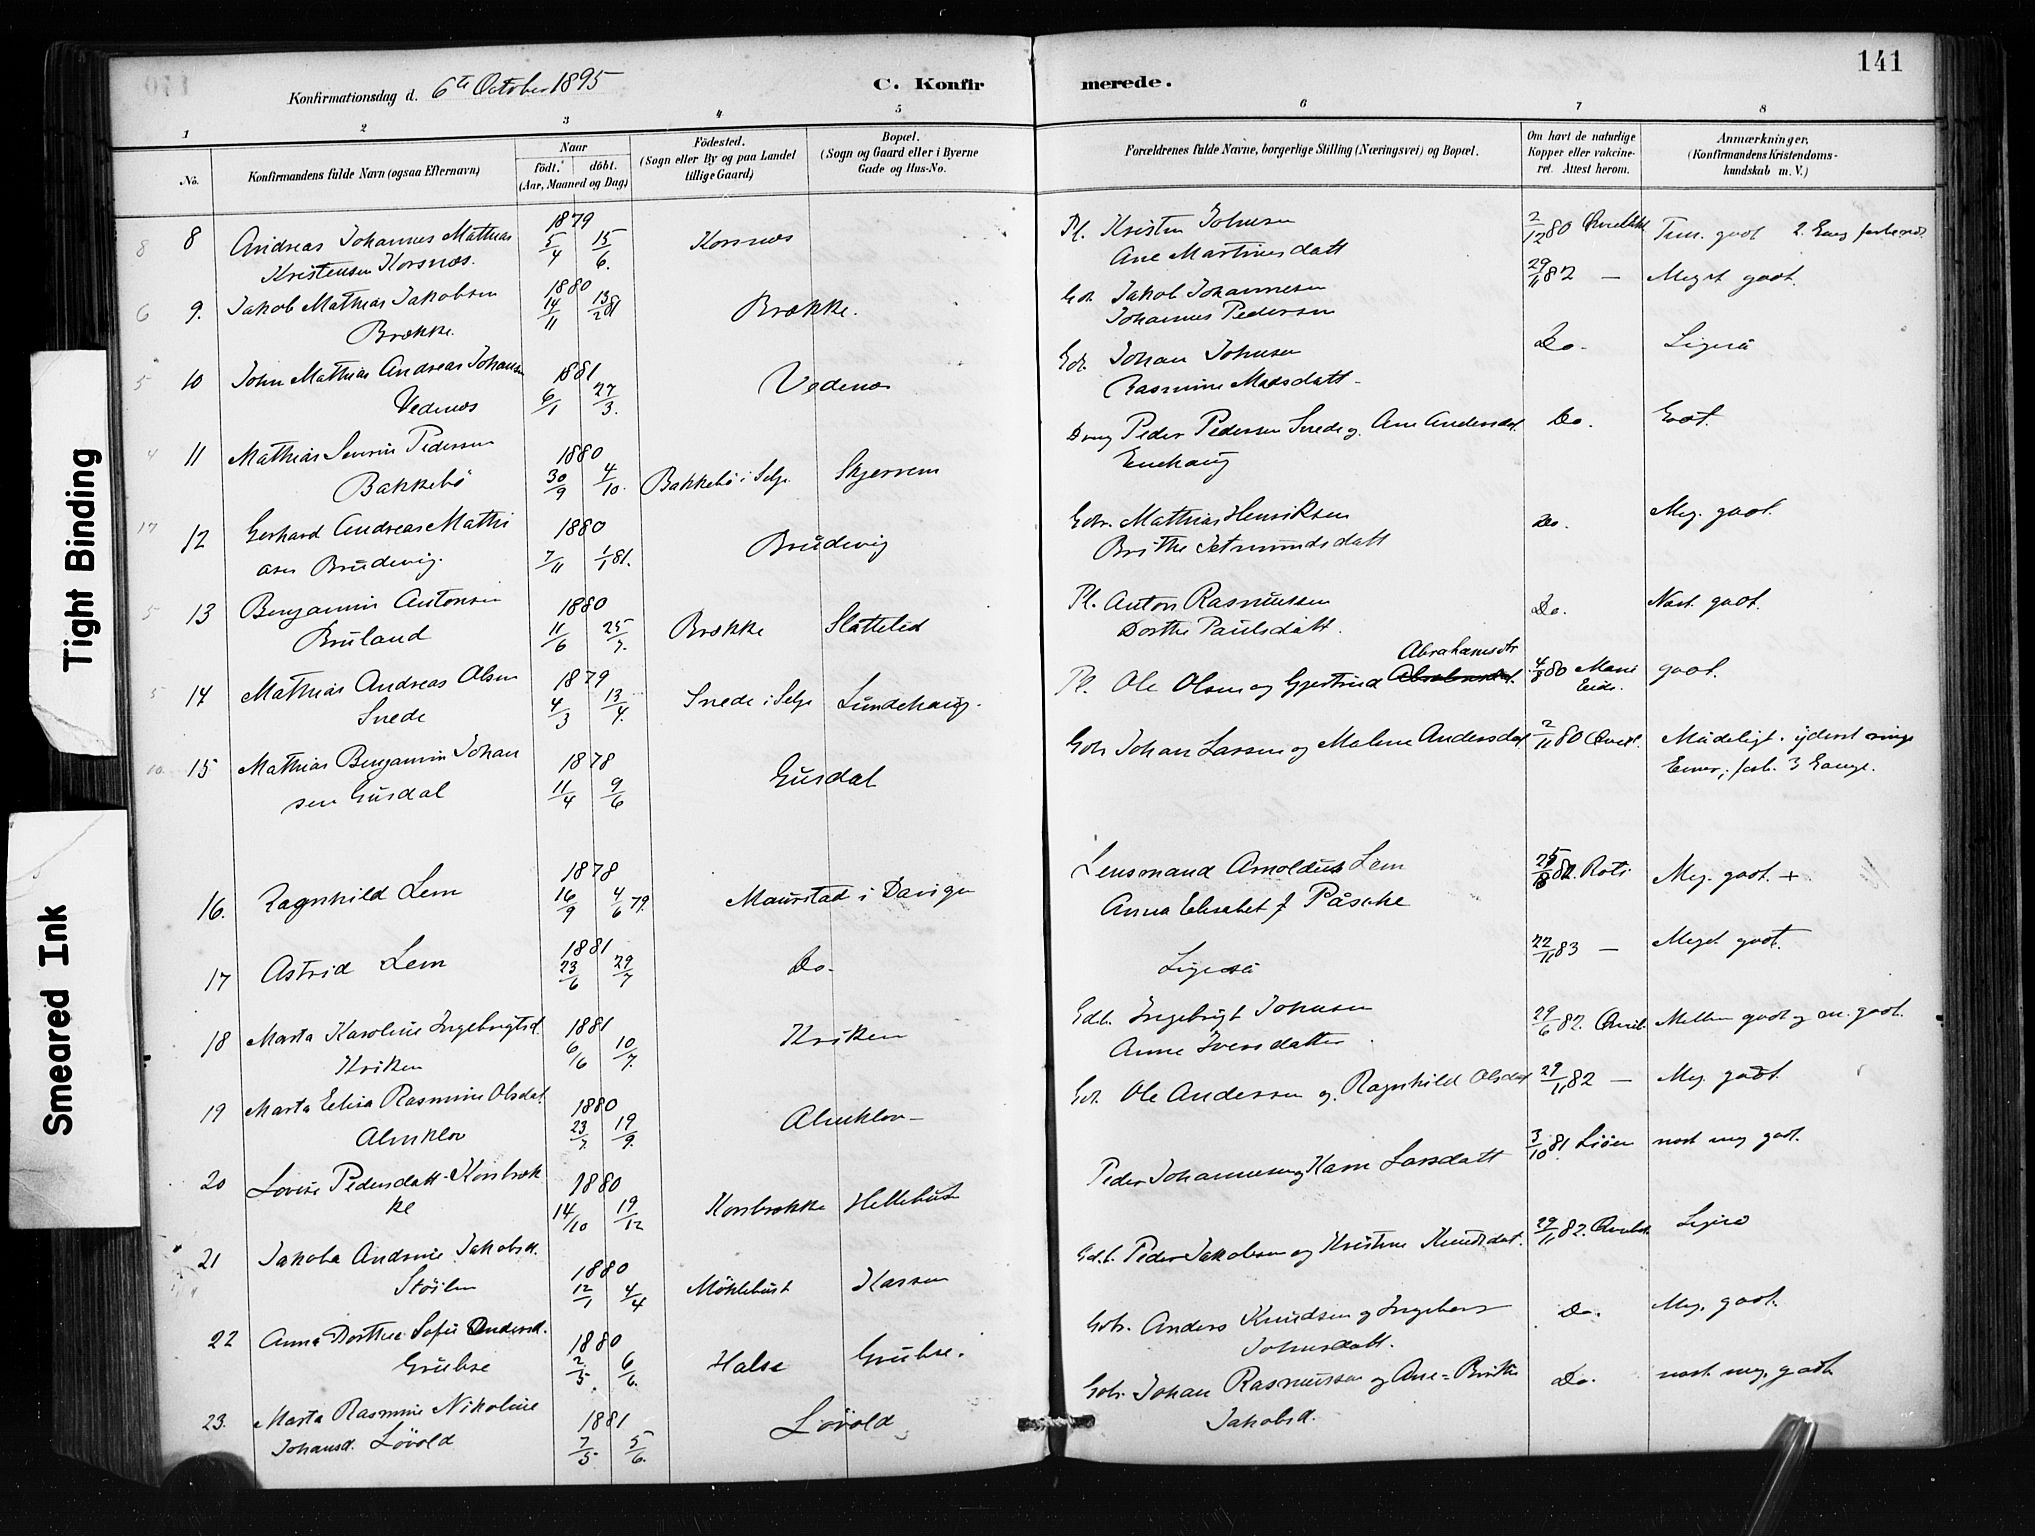 141
Konfirmationsdag d. 6te October 1895
C. Konfirmerede.
1 2 3 4 5 6 7 8
No.
Konfirmandens fulde Navn (ogsaa Efternavn)
Naar
födt. döbt.
(Aar, Maaned og Dag)
Födested.
(Sogn eller By og paa Landet
tillige Gaard)
Bopæl.
(Sogn og Gaard eller i Byerne
Gade og Hus-No.
Forældrenes fulde Navne, borgerlige Stilling (Næringsvei) og Bopæl.
Om havt de naturlige
Kopper eller vakcine-
ret. Attest herom.
Anmærkninger,
(Konfirmandens Kristendoms-
kundskab m. V.)
8 8 Andreas Johannes Mathias 1879 5/4 15/6. Korsnæs Pl. Kristen Johnsen 2/12 80
Kristensen Korsnæs. Ane Martinesdatt
6 9. Jakob Mathias Jakobsen 1880 14/11 13/2 81 Brække. Gbr. Jakob Johannesen 29/11 82 — Meget godt.
Brække. Johannes Pedersen
5 10 John Mathias Andreas Johansen 1881 6/1 27/3. Vedenæs Gbr. Johan Johnsen Do. Ligeså
Vedenæs Rasmine Madsdatt
4 11 Mathias Severin Pedersen 1880 30/9 4/10. Bakkebö i Selje Skjerven Peder Pedersen Snede og Ane Andersdat. Do. Godt.
Bakkebö
17 12 Gerhard Andreas Mathi 1880 7/11 1/1 81. Brudevig Gbr. Mathias Henriksen Do. Meg. godt.
asen Brudevig. Brithe Jetmundsdatt
5 13 Benjamin Antonsen 1880 11/6 25/7. Brække Slättelid Pl. Anton Rasmussen Do. Næst. godt.
Bruland Dorthe Paulsdatt.
5 14 Mathias Andreas Olsen 1879 4/3 13/4. Snede i Selje Lundehaug. Pl. Ole Olsen og Gjertrud Abrahamsdtr 4/8 80 godt.
Snede
10 15 Mathias Benjamin Johan 1878 11/4 9/6 Gusdal Gbr Johan Larsen og Malene Andersdat 2/11 80 Mådeligt. yderst ringe
sen Gusdal Evner; forb. 3 Gange.
16. Ragnhild Lem 1878 16/9 4/6 79. Maurstad i Davigen Lensmand Arnoldus Lem Meg. godt. +
Anna Elisabet f Påsche
17 Astrid Lem 1881 23/6 29/7 Do. Ligeså 22/11 83 — Meget godt.
18 Marta Karoline Ingebrigtsd. 1881 6/6 10/7. Kriken Gdb. Ingebrigt Johnsen 29/6 82. Mellem godt og m. godt.
Kriken Anne Iversdatter
19 Marta Elisa Rasmine Olsdat. 1880 23/7 19/9. Almklov Gbr. Ole Andersen og Ragnhild Olsdat 29/11 82 — Meg. godt.
Almklov
20 Lovise Pedersdatt. Korsbræk 1880 14/10 19/12 Korsbrække Hellebust Peder Johannesen og Karen Larsdatt 3/10 81. næst meg godt.
ke
21 Jakoba Andrine Jakobsd. 1880 12/1 4/4 Möklebust Kassen Gdb. Peder Jakobsen og Kristine Knudsdat. 29/11 82. Ligeså
Stöilen
22 Anna Dorthea Sofie Andersd. 1880 2/5 6/6. Halse Grubse. Gbr. Anders Knudsen og Ingeborg Do. Meg. godt.
Grubse Johnsdatt.
23. Marta Rasmine Nikoline 1881 7/5 5/6. Lövold Gbr. Johan Rasmussen og Ane-Brithe Do. næst meg. godt
Johansd. Lövold Jakobsd.
Tight Binding
Smeared Ink